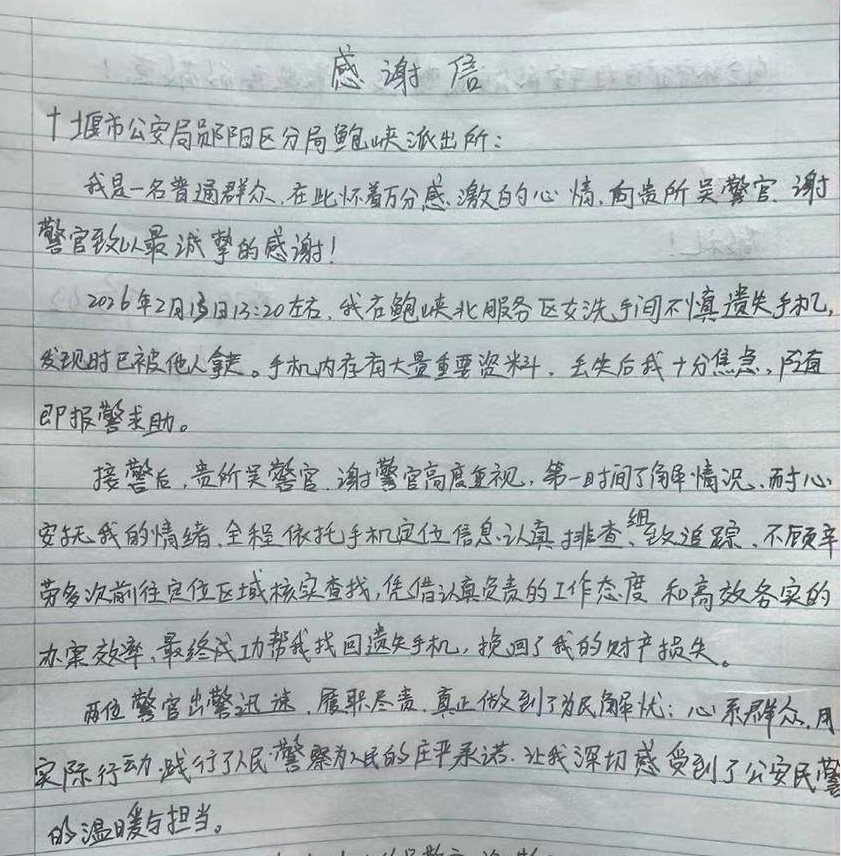 感谢信
十堰市公安局郧阳区分局鲍峡派出所：
我是一名普通群众，在此怀着万分感激的心情，向贵所吴警官、谢
警官致以最诚挚的感谢！
2026年2月13日13:20左右，我在鲍峡北服务区女洗手间不慎遗失手机，
发现时已被他人拿走。手机内存有大量重要资料，丢失后我十分焦急，随
即报警求助。
接警后，贵所吴警官、谢警官高度重视，第一时间了解情况、耐心
安抚我的情绪，全程依托手机定位信息、认真排查、细致追踪，不顾辛
劳多次前往定位区域核实查找，凭借认真负责的工作态度和高效务实的
办案效率，最终成功帮我找回遗失手机，挽回了我的财产损失。
两位警官出警迅速、履职尽责，真正做到了为民解忧；心系群众，用
实际行动践行了人民警察为人民的庄严承诺，让我深切感受到了公安民警
的温暖与担当。